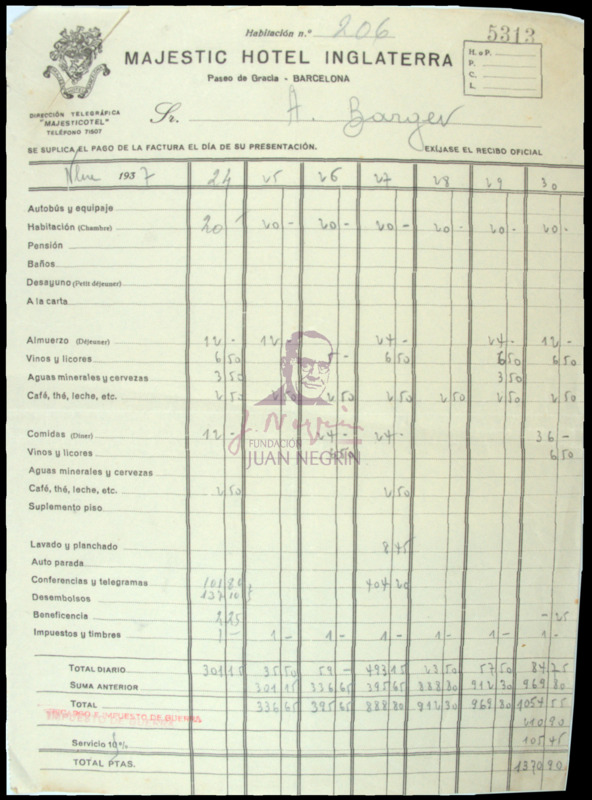 Habitación n.º 206
5313
MAJESTIC HOTEL INGLATERRA
Paseo de Gracia - BARCELONA
H. o P.
P.
C.
L.
DIRECCIÓN TELEGRÁFICA
"MAJESTICOTEL"
TELÉFONO 71507
Sr. A. Barger
SE SUPLICA EL PAGO DE LA FACTURA EL DÍA DE SU PRESENTACIÓN. EXÍJASE EL RECIBO OFICIAL
1937 24 25 26 27 28 29 30
Autobús y equipaje
Habitación (Chambre) 20 20 - 20 - 20 - 20 - 20 - 20 -
Pensión
Baños
Desayuno (Petit déjeuner)
A la carta
Almuerzo (Déjeuner) 12 - 12 - 24 - 24 - 12 -
Vinos y licores 6 50 5 - 6 50 6 50 6 50
Aguas minerales y cervezas 3 50 3 50
Café, thé, leche, etc. 2 50 2 50 2 50 2 50 2 50 2 50 2 50
Comidas (Diner) 12 - 24 - 24 - 36 -
Vinos y licores 6 50 6 50
Aguas minerales y cervezas
Café, thé, leche, etc. 2 50 2 50
Suplemento piso
J. Negrín
FUNDACIÓN
JUAN NEGRÍN
Lavado y planchado 8 45
Auto parada
Conferencias y telegramas 101 80 404 20
Desembolsos 137 10
Beneficencia 2 25 - 25
Impuestos y timbres 1 - 1 - 1 - 1 - 1 - 1 - 1 -
TOTAL DIARIO 301 15 35 50 59 - 493 15 23 50 57 50 84 75
SUMA ANTERIOR 301 15 336 65 395 65 888 80 912 30 969 80
TOTAL 336 65 395 65 888 80 912 30 969 80 1054 55
IMPUESTO DE GUERRA
210 90
Servicio 10 % 105 45
TOTAL PTAS. 1370 90